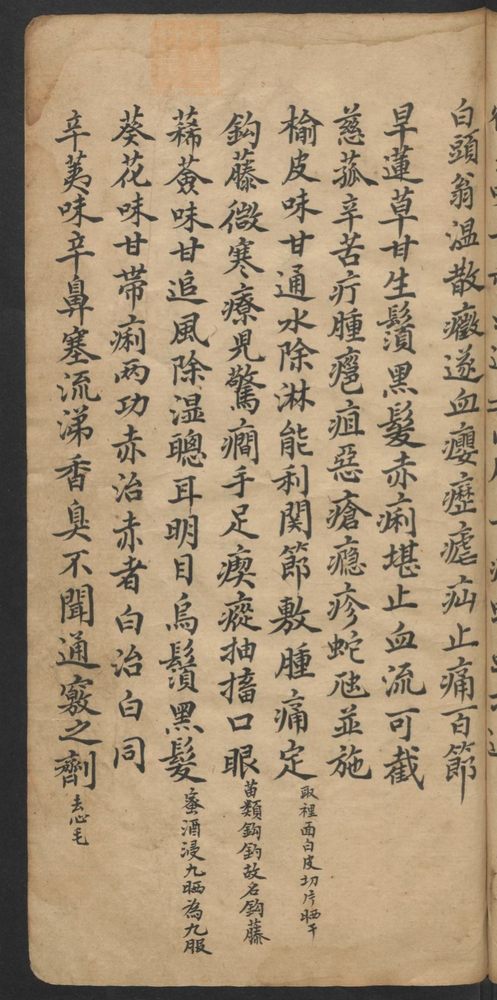 白頭翁温散癥逐血癭癧瘧疝止痛百節
旱蓮草甘生鬚黒髮赤痢堪止血流可截
慈菰辛苦疔腫癰疽惡瘡癮疹蛇虺並施
榆皮味甘通水除淋能利関節敷腫痛定取裡面白皮切片晒干
鈎藤微寒療兒驚癇手足瘈瘲抽搐口眼苗類鈎釣故名鈎藤
豨薟味甘追風除湿聰耳明目烏鬚黒髮蜜酒浸九晒為丸服
葵花味甘帶痢两功赤治赤者白治白同
辛荑味辛鼻塞流涕香臭不聞通竅之劑去心毛